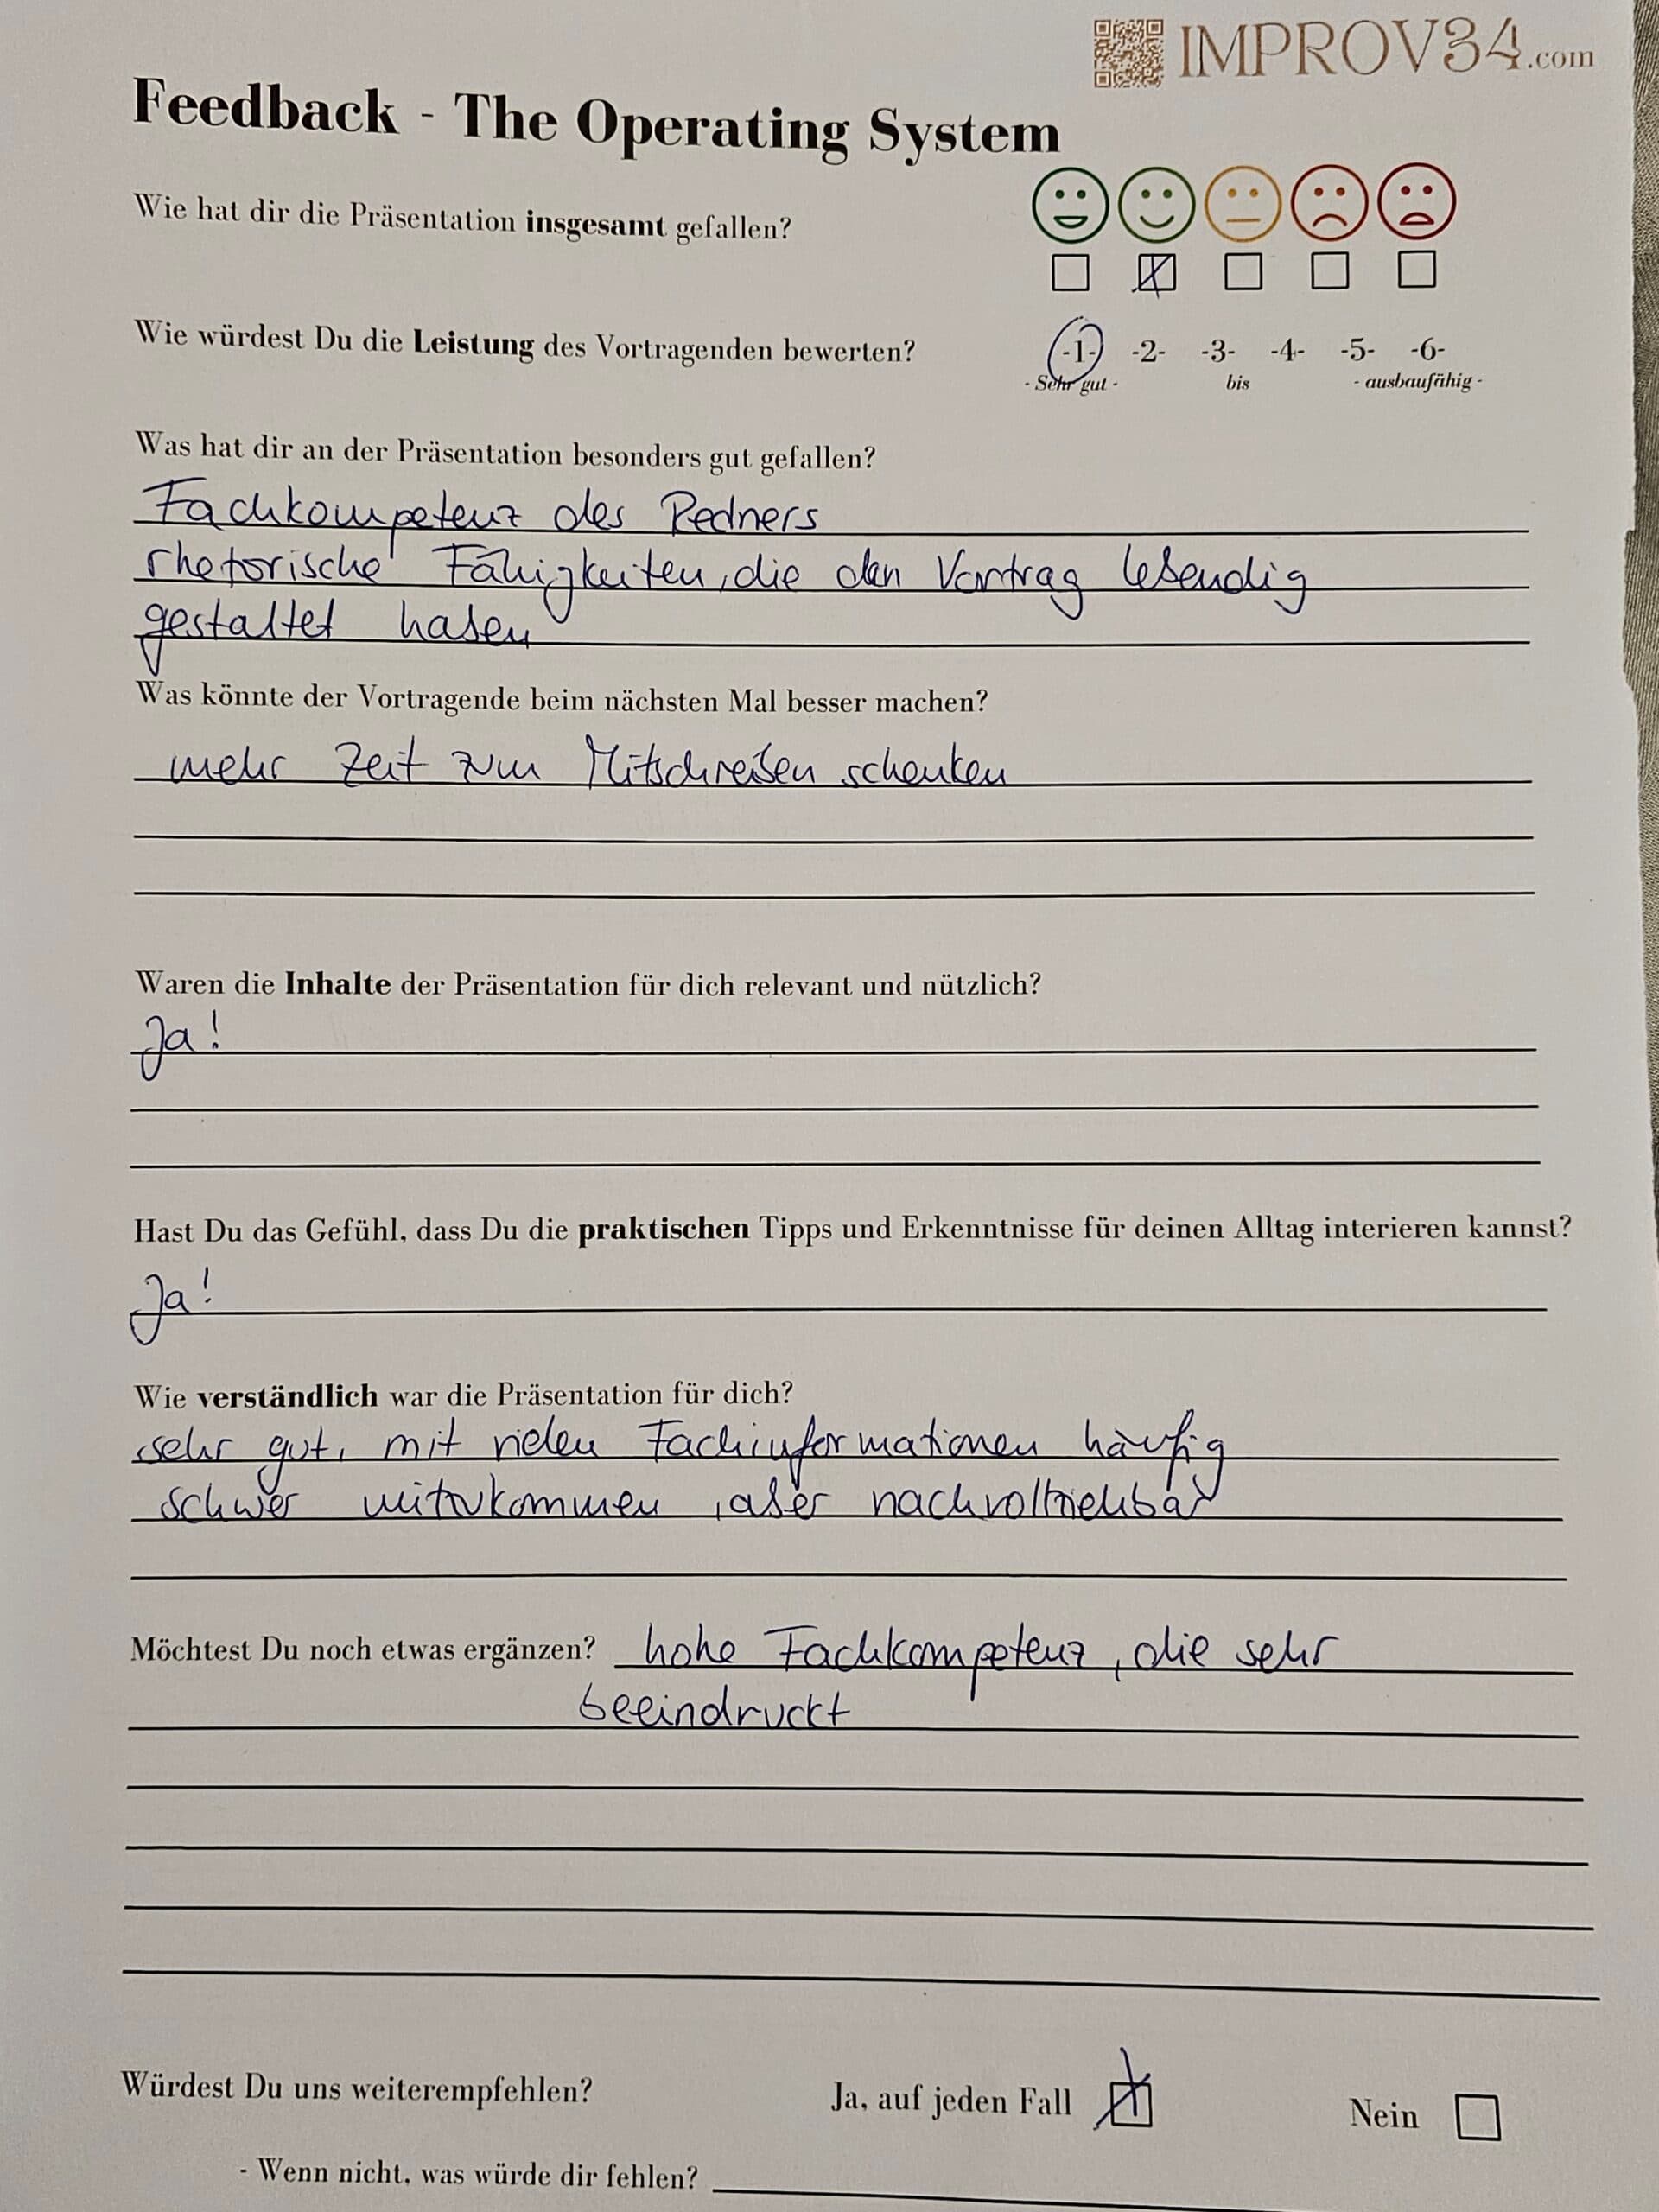 IMPROV34.com
Feedback - The Operating System
Wie hat dir die Präsentation insgesamt gefallen?
Wie würdest Du die Leistung des Vortragenden bewerten? -1- -2- -3- -4- -5- -6-
- Sehr gut - bis - ausbaufähig -
Was hat dir an der Präsentation besonders gut gefallen?
Fachkompetenz des Redners
rhetorische Fähigkeiten, die den Vortrag lebendig
gestaltet haben
Was könnte der Vortragende beim nächsten Mal besser machen?
mehr Zeit zum Mitschreiben schenken
Waren die Inhalte der Präsentation für dich relevant und nützlich?
Ja!
Hast Du das Gefühl, dass Du die praktischen Tipps und Erkenntnisse für deinen Alltag interieren kannst?
Ja!
Wie verständlich war die Präsentation für dich?
sehr gut, mit vielen Fachinformationen häufig
schwer mitzukommen, aber nachvollziehbar
Möchtest Du noch etwas ergänzen? hohe Fachkompetenz, die sehr
beeindruckt
Würdest Du uns weiterempfehlen? Ja, auf jeden Fall Nein
- Wenn nicht, was würde dir fehlen?